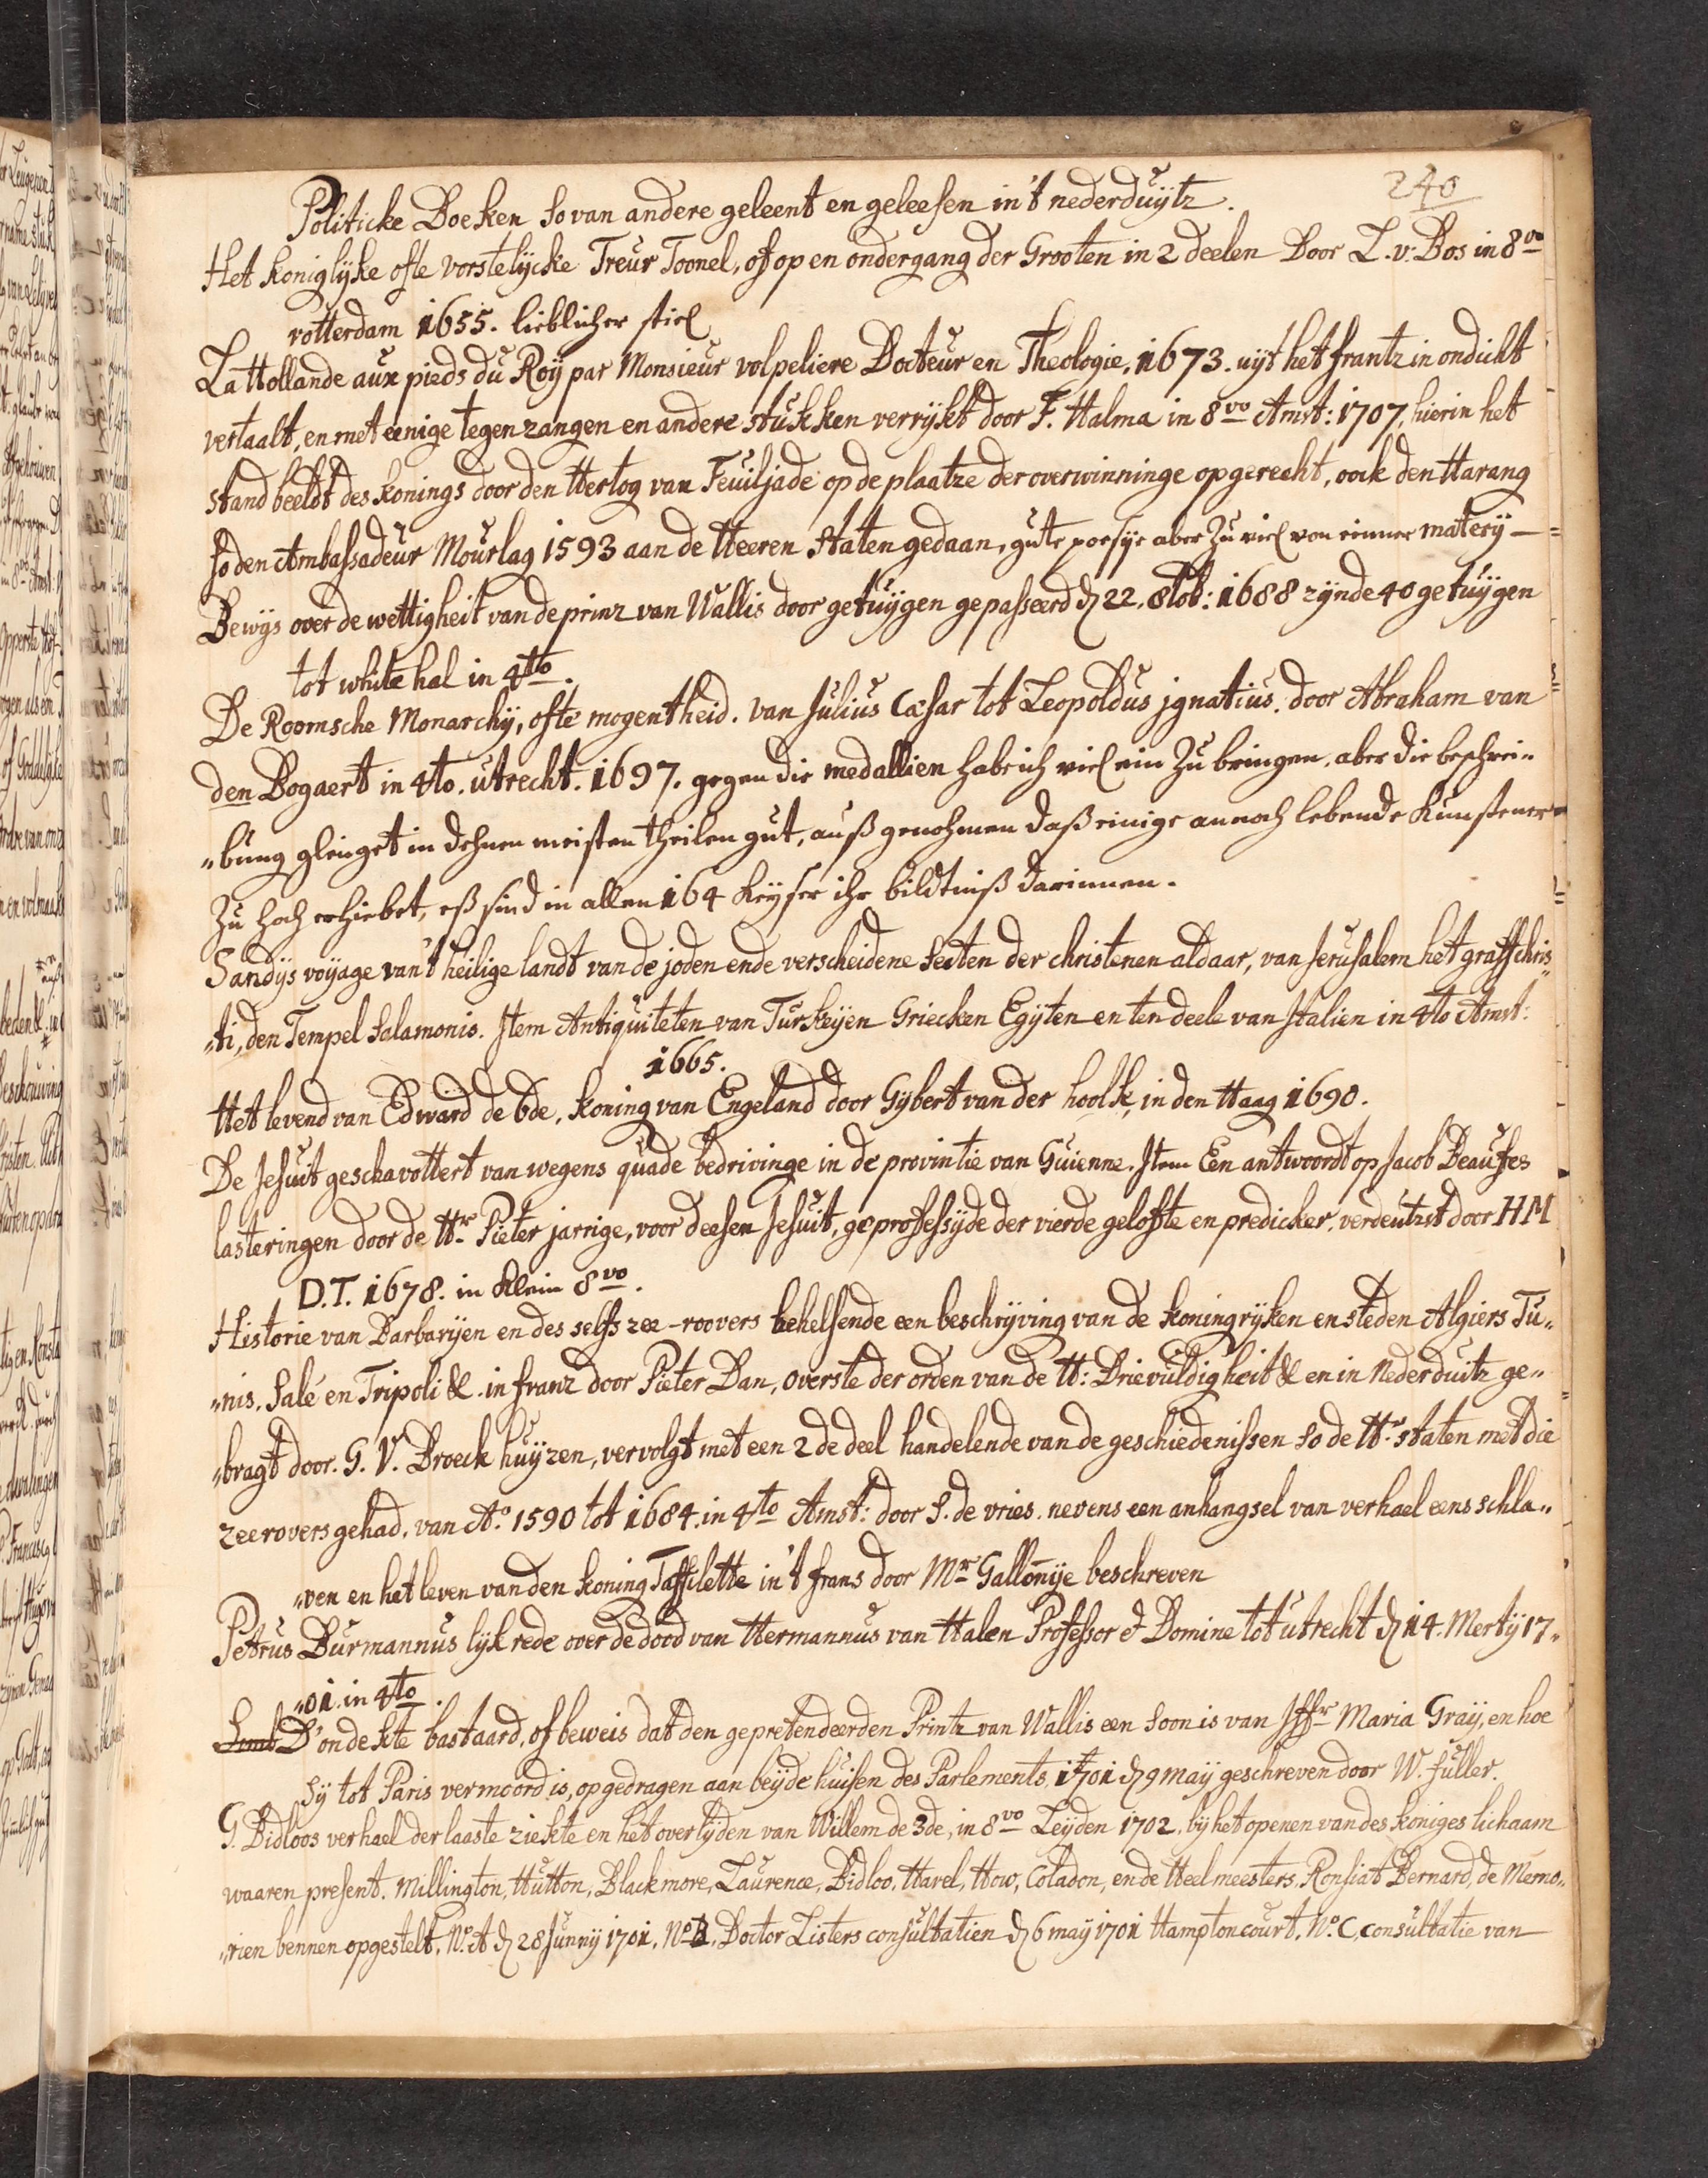 240
Politicke Boeken so van andere geleent en geleesen in't nederduÿtz.
Het koniglijke ofte vorstelijcke Treur Toonel, of op en ondergang der Grooten in 2 deelen Door L. v. Bos in 8vo
rotterdam 1655. lieblicher stiel
La Hollande aux pieds du Roÿ par Monsieur volpeliere Docteur en Theologie, 1673. uÿt het frantz in ondicht
vertaalt, en met eenige tegen zangen en andere stukken verrÿkt door F. Halma in 8vo Amst: 1707. hierin het
stand beeldt des konings door den Hertog van Feuiljade op de plaatze der overwinninge opgerecht, ook den Harang
so den Ambassadeur Mourlag 1593 aan de Heeren staten gedaan, gute poesÿe aber zu viel von einner materÿ
Bewÿs over de wettigheit van de prinz van Wallis door getuÿgen gepasseerd d 22. 8tob: 1688 zÿnde 40 getuÿgen
tot white hal in 4to.
De Roomsche Monarchÿ, ofte mogentheid. van Julius Cæsar tot Leopoldus jgnatius. door Abraham van
den Bogaert in 4to. utrecht. 1697. gegen die medallien habe ich viel ein zu bringen, aber die beschrei„
„bung glenget in dehnen meisten theilen gut, auß genohmen daß einige annoch lebende Kunstener
zu hoch erhiebet, eß sind in allen 164 keÿser ihr bildtniß darinnen.
Sandÿs voÿage van't heilige landt van de joden ende verscheidene secten der christenen aldaar, van Jerusalem het graff chris„
„ti, den Tempel Salamonis. Jtem Antiquiteten van Turkeÿen Griecken Egÿten en ten deele van Jtalien in 4to Amst:
1665.
Het levend van Edward de 6de, koning van Engeland door Gÿbert van der hoolk, in den Haag 1690.
De Jesuit geschavottert van wegens quade bedrivinge in de provintie van Guienne. Jtem Een antwoordt op Jacob Beaufes
lasteringen door de Hr. Pieter jarrige, voor deesen Jesuit, geprofessÿde der vierde gelofte en predicker, verdeutzet door HM
D.T. 1678. in klein 8vo.
Historie van Barbarÿen en des selfs zee-roovers behelsende een beschrÿving van de koningrÿken en steden Algiers Tu„
„nis. Salé en Tripoli &. in franz door Pieter Dan, overste der orden van de H: Drievuldigheit & en in Nederduitz ge„
„bragt door. G. V. Broeckhuÿzen, vervolgt met een 2de deel handelende van de geschiedenissen so de Hr. staten met die
zeerovers gehad, van Ao. 1590 tot 1684. in 4to Amst: door S. de vries. nevens een anhangsel van verhael eens schla„
„ven en het leven van den koning Taffilette in't frans door Mr Gallonÿe beschreven
Petrus Burmannus lÿk rede over de dood van Hermannus van Halen Professor & Domine tot utrecht d 14. Mertÿ 17„
„01. in 4to.
D'ondekte bastaard, of beweis dat den gepretendeerden Printz van Wallis een Soon is van Jffr Maria Graÿ, en hoe
sÿ tot Paris vermoord is, opgedragen aan beÿde huisen des Parlements. 1701 d 9 maÿ geschreven door W. fuller.
G. Bidloos verhael der laaste ziekte en het overlÿden van Willem de 3de, in 8vo Leÿden 1702, bÿ het openen van des koniges lichaam
waaren present. Millington, Hutton, Blackmore, Laurence, Bidloo, Harel, How, Coladon, en de Heelmeesters. Ronsiat Bernard, de Memo„
„rien bennen opgestelt. No. A d 28 Junnÿ 1701. No B. Doctor Listers consultatien d 6 maÿ 1701 Hamptoncourt. No. C, consultatie van